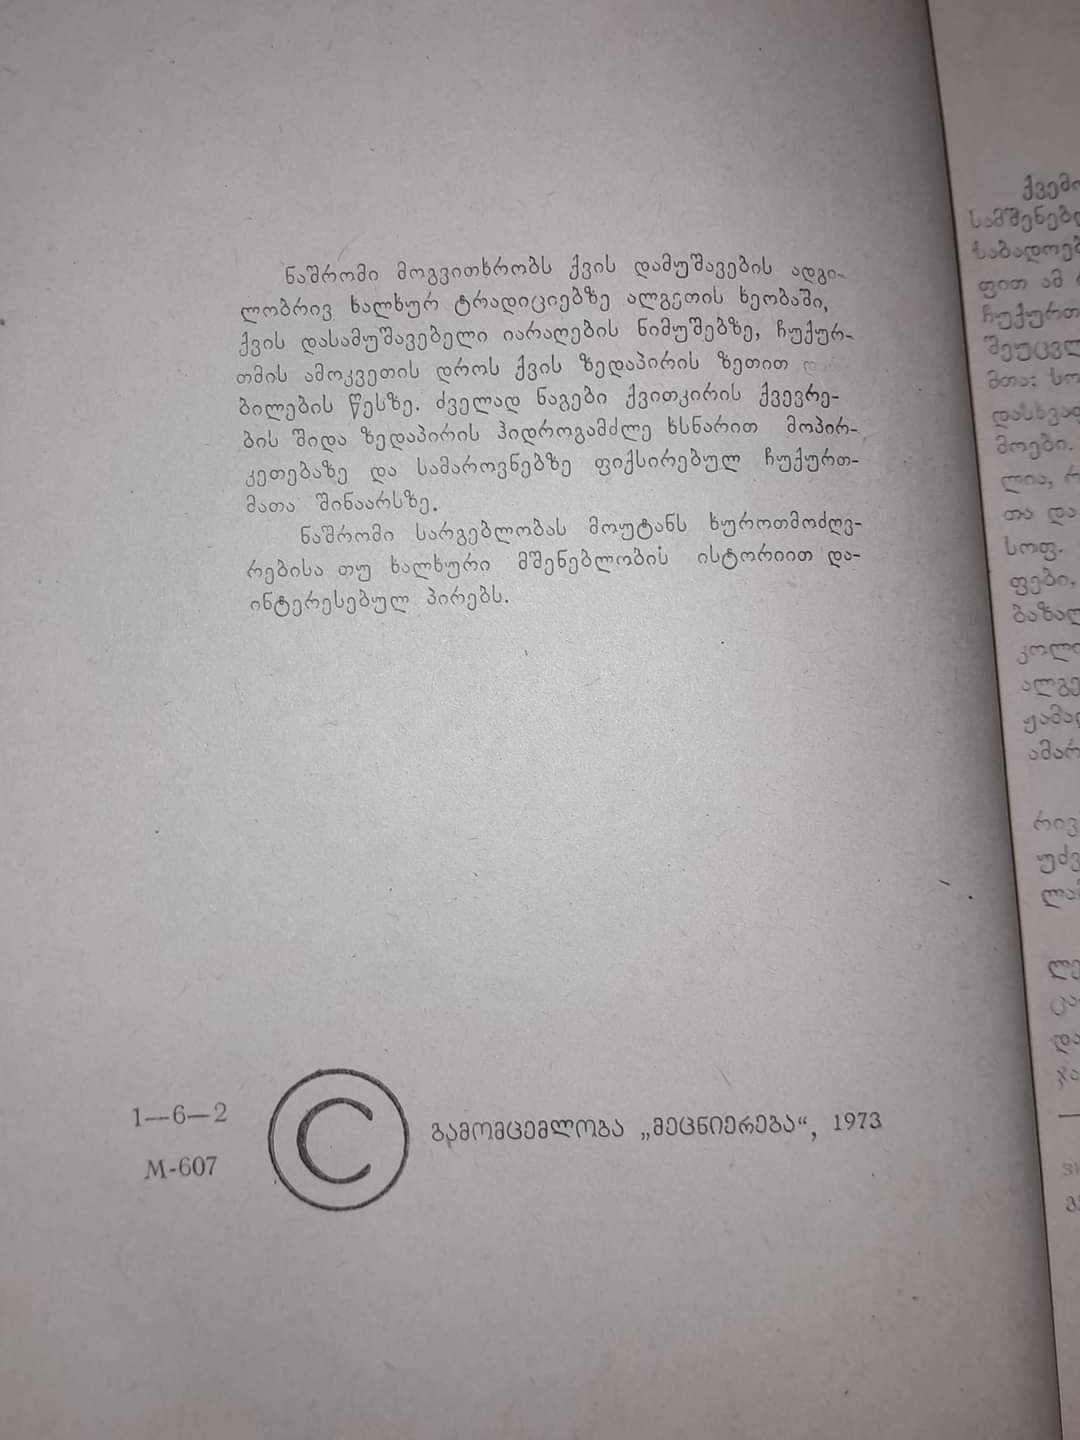 ნაშრომი მოგვითხრობს ქვის დამუშავების ადგი-
ლობრივ ხალხურ ტრადიციებზე ალგეთის ხეობაში,
ქვის დასამუშავებელი იარაღების ნიმუშებზე, ჩუქურ-
თმის ამოკვეთის დროს ქვის ზედაპირის ზეთით
ბილების წესზე. ძველად ნაგები ქვითკირის ქვევრე-
ბის შიდა ზედაპირის ჰიდროგამძლე ხსნარით მოპირ-
კეთებაზე და სამაროვნებზე ფიქსირებულ ჩუქურთ-
მათა შინაარსზე.
ნაშრომი სარგებლობას მოუტანს ხუროთმოძღვ-
რებისა თუ ხალხური მშენებლობის ისტორიით და-
ინტერესებულ პირებს.
1—6—2
M-607
©
გამომცემლობა „მეცნიერება“, 1973
ქვემო
სამშენებლ
საბადოებ
ფით ამ
ჩუქურთ
შეუცვლ
მთა: სო
დასხვაფ
მოები.
ლია, რ
თა და
სოფ.
ფები,
ბაზალ
კოლ
ალგე
ჟამად
ამარ
რივ
უძვ
ლა
ლე
ცა
და
ჯა